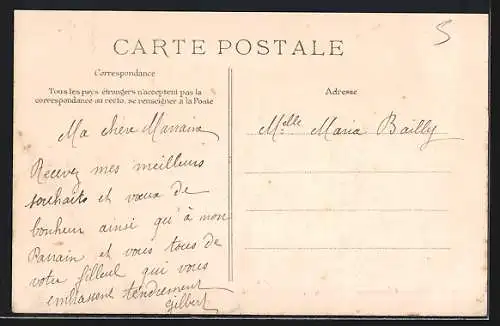 5
CARTE POSTALE
Correspondance
Tous les pays étrangers n'acceptent pas la
correspondance au recto, se renseigner à la Poste
Adresse
Ma chère Marraine
Recevez mes meilleurs
souhaits et vœux de
bonheur ainsi qu'à mon
Parrain et vous tous de
votre filleul qui vous
embrassent tendrement
Gilbert
Melle Maria Bailly